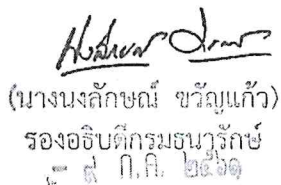 (นางนงลักษณ์ ขวัญแก้ว)
รองอธิบดีกรมธนารักษ์
- ๙ ก.ค. ๒๕๖๑